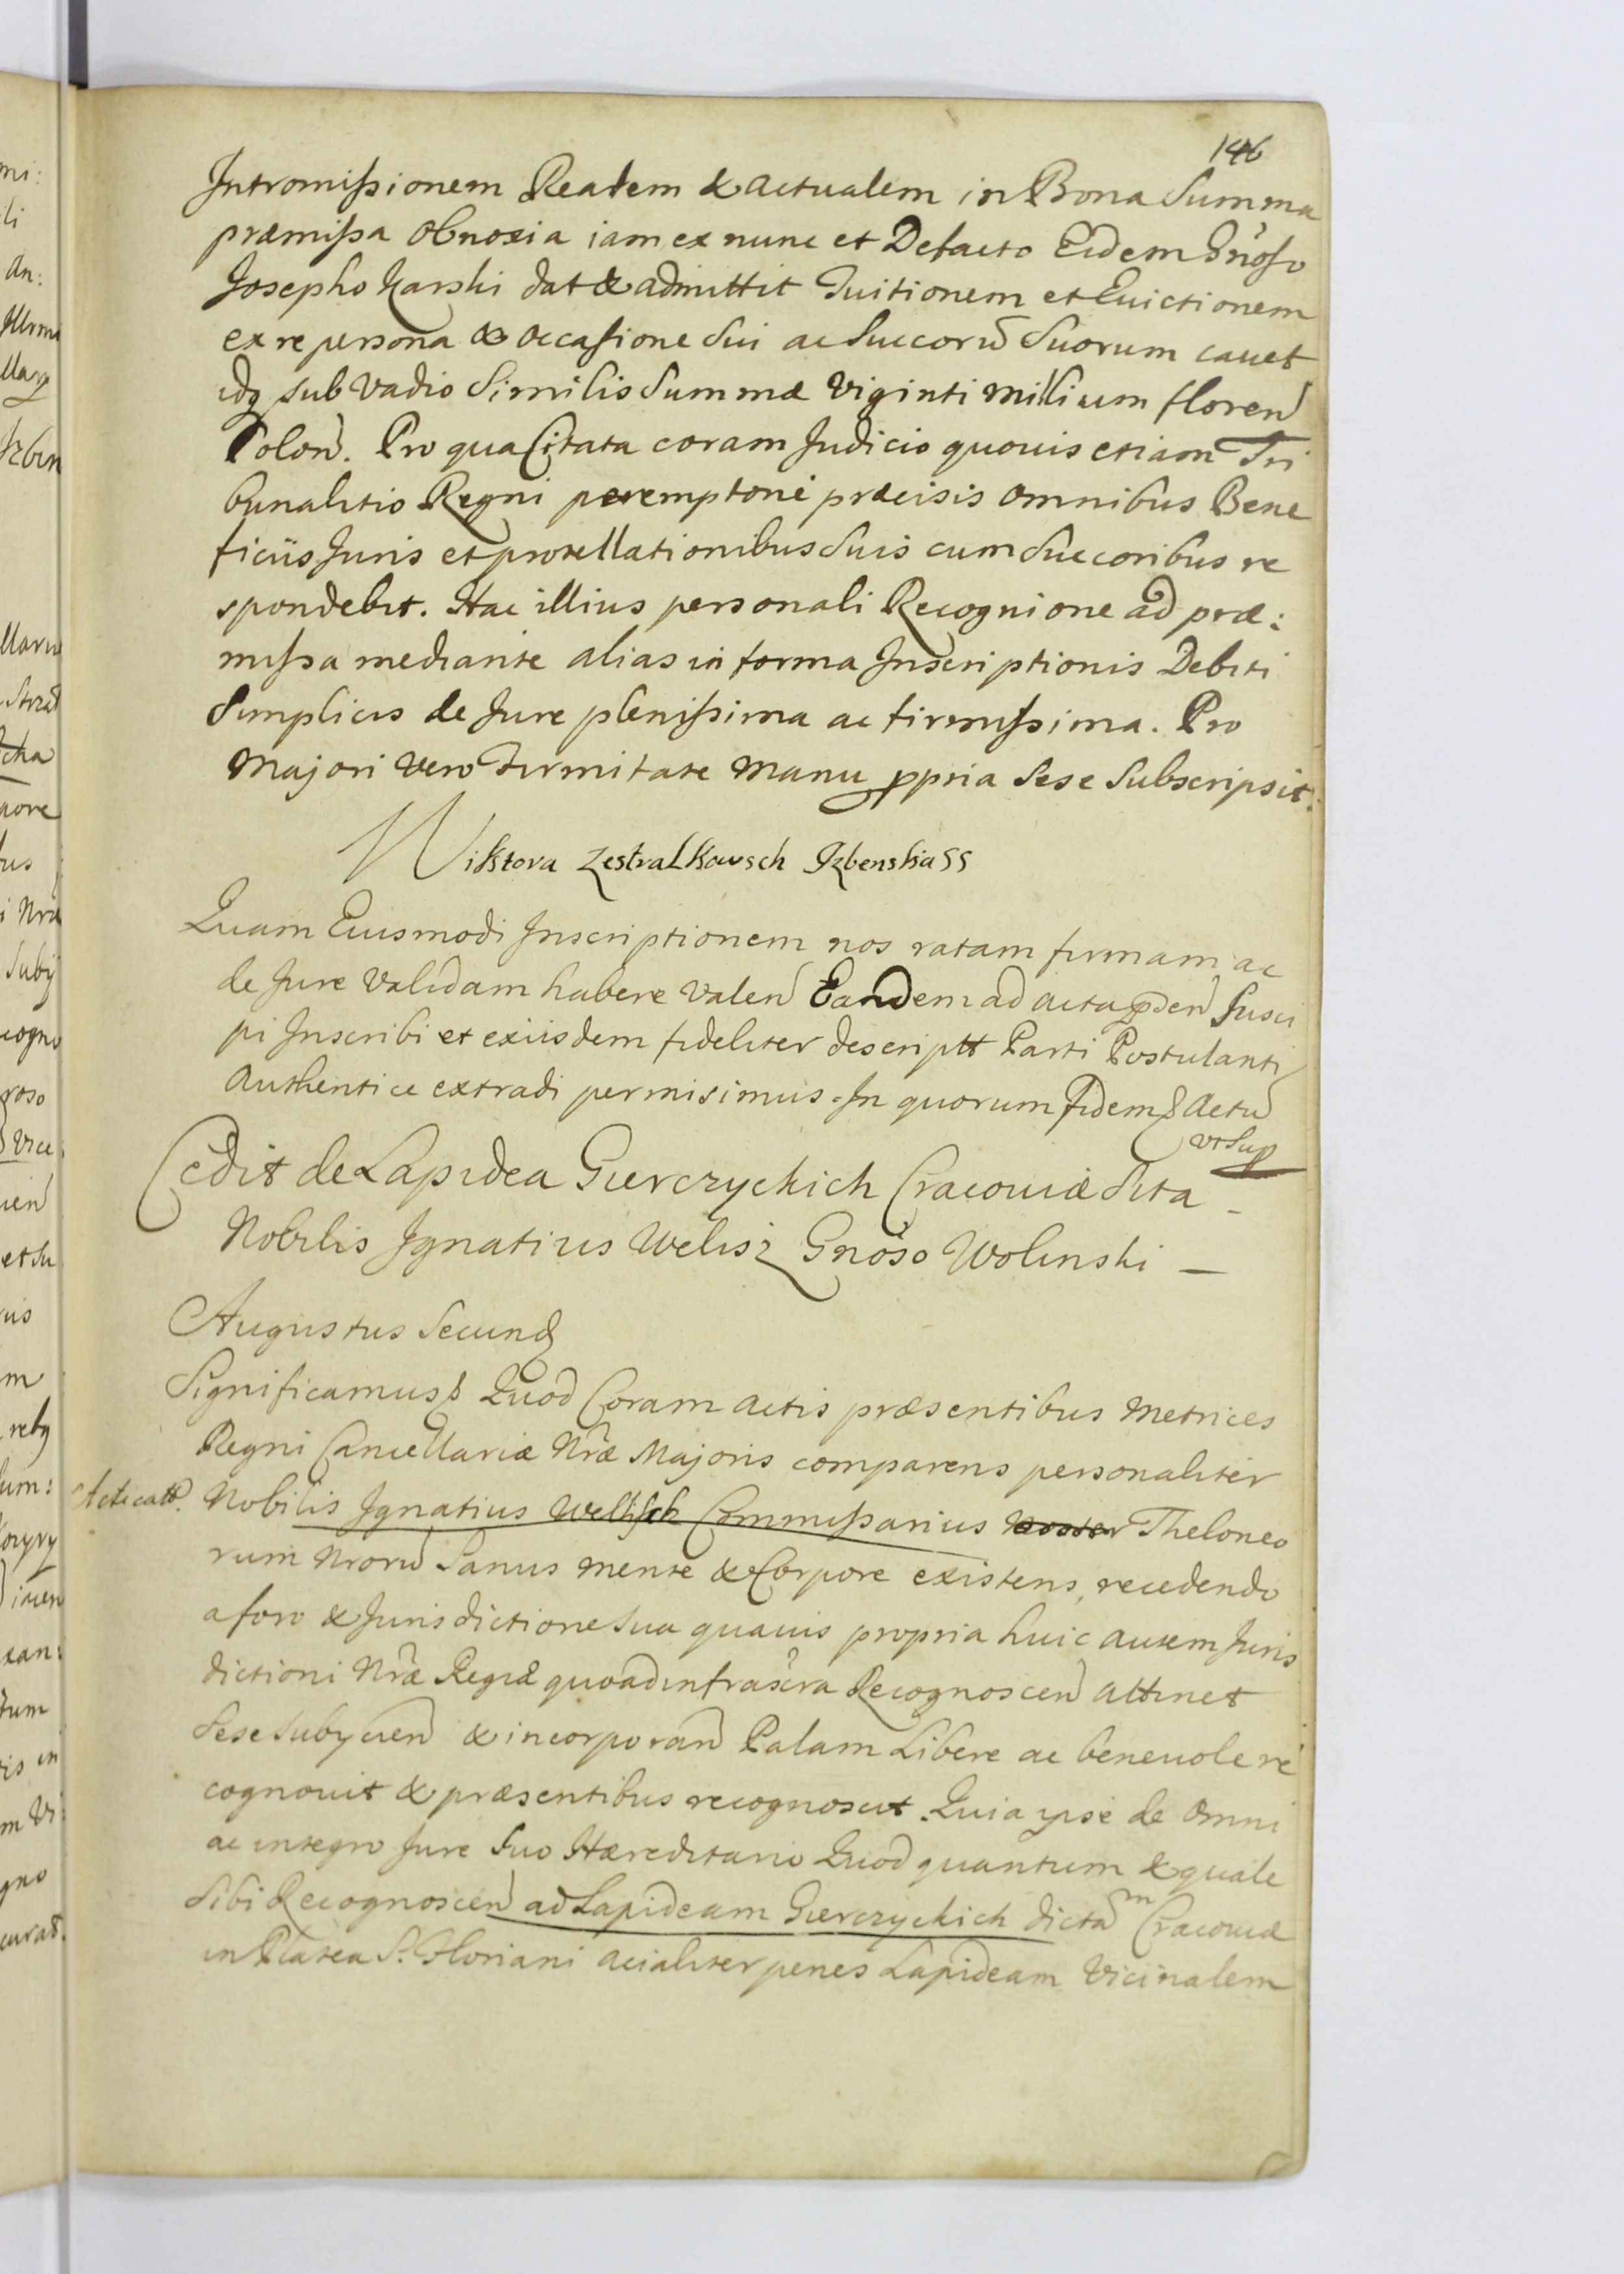 146
Intromissionem Realem & actualem in Bona Summa
præmissa obnoxia iam ex nunc et Defacto Eidem Gnoso
Josepho Karski dat & admittit Tuitionem et Evictionem
ex re persona & occasione Sui ac Succorũ Suorum cauet
idq sub Vadio Similis Summæ Viginti millium floren
Polon. Pro qua Citata coram Judicio quouis etiam Tri
bunalitio Regni peremptorie præcisis omnibus Bene
ficijs Juris et prorellationibus Suis cum Succoribus re
spondebit. Hac illius personali Recognione ad præ:
missa mediante alias in forma Inscriptionis Debiti
Simplicis de Jure plenissima ac firmissima. Pro
Majori vero Firmitate manu ppria Sese Subscripsit.
Wiktora Zestralkowsch Izbenska ss
Quam Eiusmodi Inscriptionem nos ratam firmam ac
de Jure Validam habere Valen Eandem ad acta pden Susci
pi Inscribi et exiisdem fideliter descriptt Parti Postulanti
Authentice extradi permisimus. In quorum Fidem & Actũ
vt Sup
Cedit de Lapidea Gierczyckich Cracoviæ Sita _
Nobilis Ignatius Welisz Gnoso Wolinski —
Augustus Secund9
Significamus & Quod Coram actis præsentibus Metrices
Regni Cancellariæ Nræ Majoris comparens personaliter
Acticatt. Nobilis Ignatius Wellisch Commissarius Noster Theloneo
rum Nrorũ Sanus mente & Corpore existens, recedendo
a foro & Jurisdictione Sua quauis propria huic autem Juris
dictioni Nræ Regiæ quoad infrascra Recognoscen attinet
Sese Subycien & incorporan Palam Libere ac beneuole re
cognouit & præsentibus recognoscit. Quia ipse de Omni
ac integro Jure Suo Hæreditario Quod quantum & quale
Sibi Recognoscen ad Lapideam Gierczyckich dictam Cracoviæ
in Platea S. Floriani acialiter penes Lapideam Vicinalem